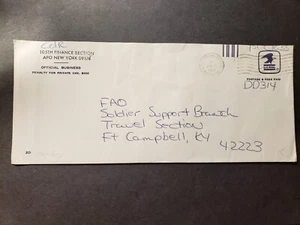 CDR
105TH FINANCE SECTION
APO NEW YORK 09
OFFICIAL BUSINESS
PENALTY FOR PRIVATE USE, $300
POSTAGE & FEES PAID
DD314
FAO
Soldier Support Branch
Travel Section
Ft Campbell, Ky
42223